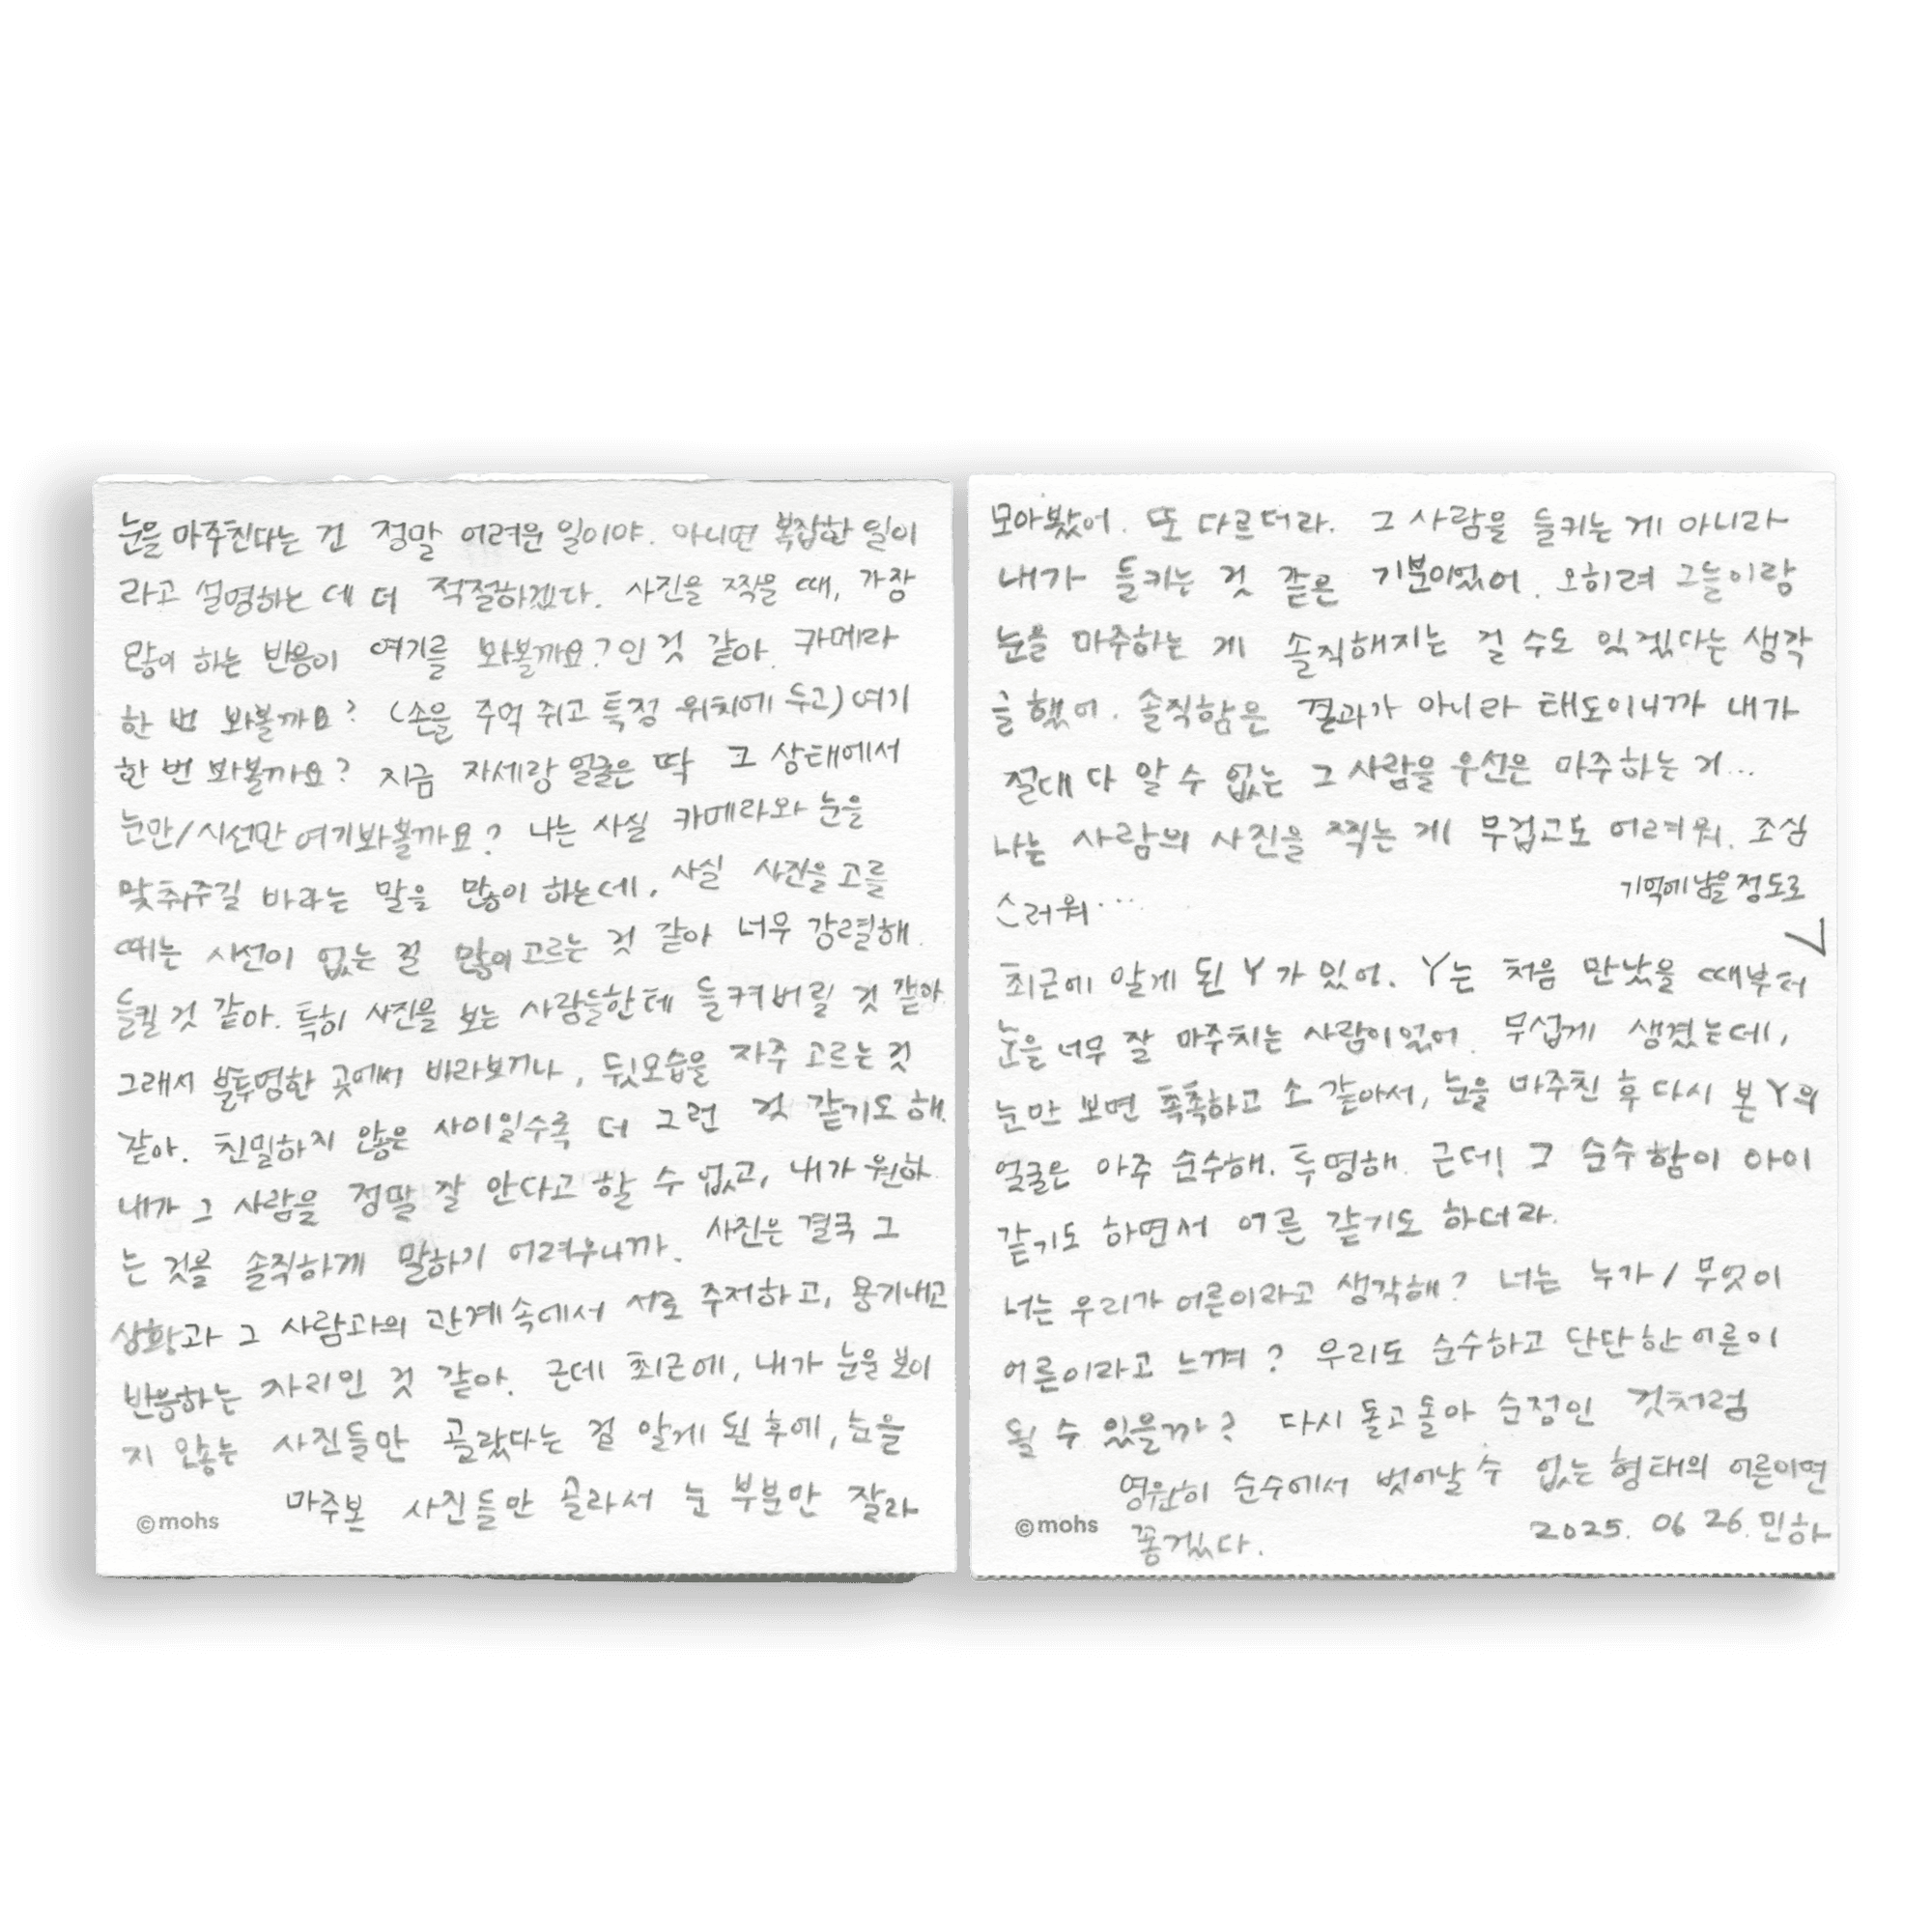 눈을 마주친다는 건 정말 어려운 일이야. 아니면 복잡한 일이
라고 설명하는 데 더 적절하겠다. 사진을 찍을 때, 가장
많이 하는 반응이 여기를 봐볼까요?인 것 같아. 카메라
한 번 봐볼까요? (손을 주먹 쥐고 특정 위치에 두고) 여기
한 번 봐볼까요? 지금 자세랑 얼굴은 딱 그 상태에서
눈만/시선만 여기봐볼까요? 나는 사실 카메라와 눈을
맞춰주길 바라는 말을 많이 하는데, 사실 사진을 고를
때는 시선이 없는 걸 많이 고르는 것 같아 너무 강렬해.
들킬 것 같아. 특히 사진을 보는 사람들한테 들켜버릴 것 같아
그래서 불투명한 곳에서 바라보거나, 뒷모습을 자주 고르는 것
같아. 친밀하지 않은 사이일수록 더 그런 것 같기도 해.
내가 그 사람을 정말 잘 안다고 할 수 없고, 내가 원하
는 것을 솔직하게 말하기 어려우니까. 사진은 결국 그
상황과 그 사람과의 관계 속에서 서로 주저하고, 용기내고
반응하는 자리인 것 같아. 근데 최근에, 내가 눈을 보이
지 않는 사진들만 골랐다는 걸 알게 된 후에, 눈을
마주본 사진들만 골라서 눈 부분만 잘라
©mohs
모아봤어. 또 다르더라. 그 사람을 들키는 게 아니라
내가 들키는 것 같은 기분이었어. 오히려 그들이랑
눈을 마주하는 게 솔직해지는 걸 수도 있겠다는 생각
을 했어. 솔직함은 결과가 아니라 태도이니까 내가
절대 다 알 수 없는 그 사람을 우선은 마주하는 거...
나는 사람의 사진을 찍는 게 무겁고도 어려워. 조심
스러워...
기억에 남을 정도로
최근에 알게 된 Y가 있어. Y는 처음 만났을 때부터
눈을 너무 잘 마주치는 사람이었어. 무섭게 생겼는데,
눈만 보면 촉촉하고 소 같아서, 눈을 마주친 후 다시 본 Y의
얼굴은 아주 순수해. 투명해. 근데! 그 순수함이 아이
같기도 하면서 어른 같기도 하더라.
너는 우리가 어른이라고 생각해? 너는 누가/무엇이
어른이라고 느껴? 우리도 순수하고 단단한 어른이
될 수 있을까? 다시 돌고 돌아 순정인 것처럼
영원히 순수에서 벗어날 수 없는 형태의 어른이면
좋겠다.
2025. 06 26. 민하
©mohs